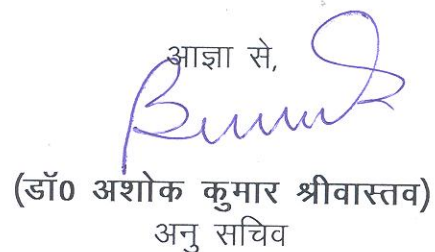 आज्ञा से,
(डॉ0 अशोक कुमार श्रीवास्तव)
अनु सचिव